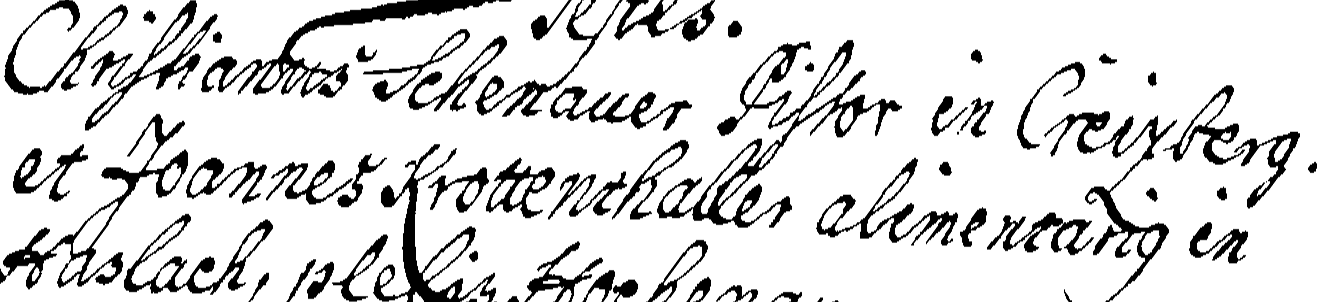 Testes.
Christianus Schenauer Pistor in Creixberg.
et Joannes Krottenthaller alimentarig in
Haslach,